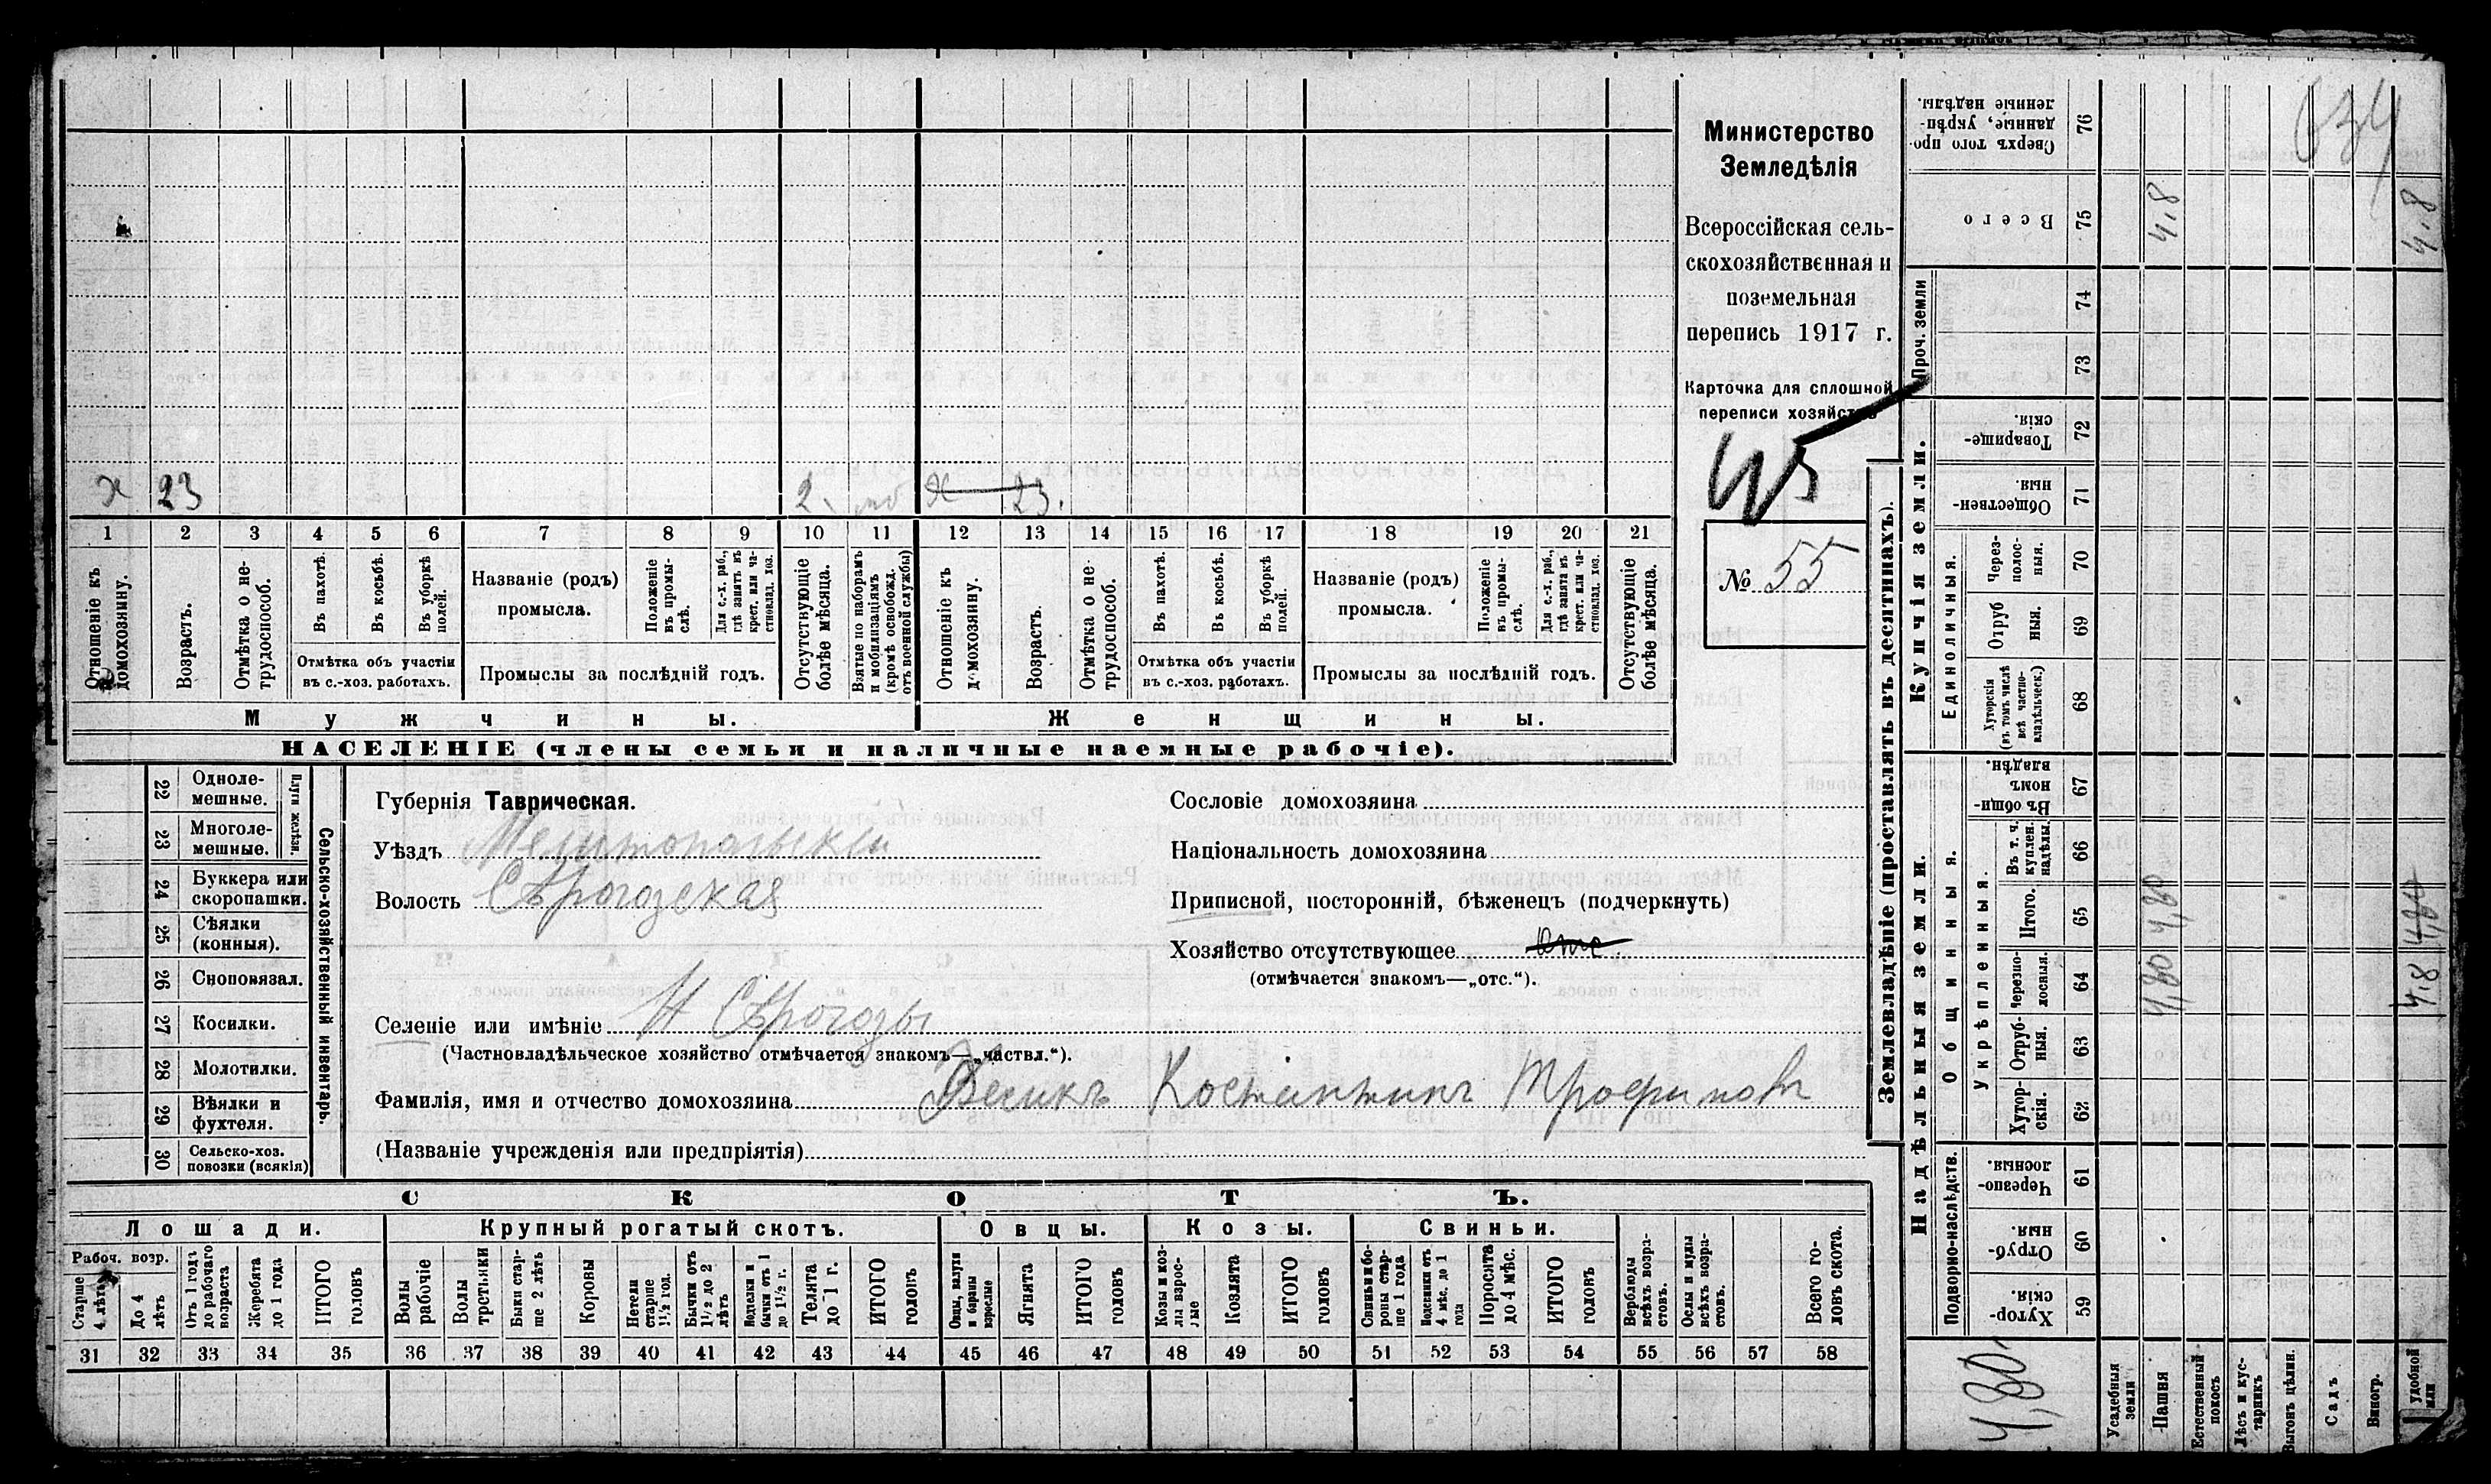 634
Министерство
Земледѣлія
Всероссійская сель-
скохозяйственная и
поземельная
перепись 1917 г.
Карточка для сплошной
переписи хозяйствъ
№ 55
х 23 2. х 23.
1 2 3 4 5 6 7 8 9 10 11 12 13 14 15 16 17 18 19 20 21
Отношеніе къ домохозяину.
Возрастъ.
Отмѣтка о не-трудоспособ.
Въ пахотѣ.
Въ косьбѣ.
Въ уборкѣ полей.
Отмѣтка объ участіи
въ с.-хоз. работахъ.
Названіе (родъ)
промысла.
Положеніе въ промы-слѣ.
Для с.-х. раб., гдѣ занятъ въ крест. или ча-стновлад. хоз.
Промыслы за послѣдній годъ.
Отсутствующіе болѣе мѣсяца.
Взятые по наборамъ и мобилизаціямъ (кромѣ освобожд. отъ военной службы)
Отношеніе къ домохозяину.
Возрастъ.
Отмѣтка о не-трудоспособ.
Въ пахотѣ.
Въ косьбѣ.
Въ уборкѣ полей.
Отмѣтка объ участіи
въ с.-хоз. работахъ.
Названіе (родъ)
промысла.
Положеніе въ промы-слѣ.
Для с.-х. раб., гдѣ занята въ крест. или ча-стновлад. хоз.
Промыслы за послѣдній годъ.
Отсутствующіе болѣе мѣсяца.
Мужчины.
Женщины.
НАСЕЛЕНІЕ (члены семьи и наличные наемные рабочіе).
Сельско-хозяйственный инвентарь.
Плуги желѣзн.
22 Одноле-мешные.
23 Многоле-мешные.
24 Буккера или скоропашки.
25 Сѣялки (конныя).
26 Сноповязал.
27 Косилки.
28 Молотилки.
29 Вѣялки и фухтеля.
30 Сельско-хоз. повозки (всякія)
Губернія Таврическая.
Уѣздъ Мелитопольскій
Волость Сѣрогозская
Селеніе или имѣніе Н Сѣрогозы
(Частновладѣльческое хозяйство отмѣчается знакомъ—„частвл.“).
Фамилія, имя и отчество домохозяина Костантинъ Трофимовъ
(Названіе учрежденія или предпріятія)
Сословіе домохозяина
Національность домохозяина
Приписной, посторонній, бѣженецъ (подчеркнуть)
Хозяйство отсутствующее отс
(отмѣчается знакомъ—„отс.“).
СКОТЪ.
Лошади.
Крупный рогатый скотъ.
Овцы.
Козы.
Свиньи.
Рабоч. возр.
Старше 4 лѣтъ
До 4 лѣтъ
Отъ 1 года до рабочаго возраста
Жеребята до 1 года
ИТОГО головъ
Волы рабочіе
Волы третьяки
Быки стар-ше 2 лѣтъ
Коровы
Нетели старше 1½ год.
Бычки отъ 1½ до 2 лѣтъ
Подтелки и бычки отъ 1 до 1½ г.
Телята до 1 г.
ИТОГО головъ
Овцы, валухи и бараны взрослые
Ягнята
ИТОГО головъ
Козы и коз-лы взрос-лые
Козлята
ИТОГО головъ
Свиньи и бо-ровы стар-ше 1 года
Подсвинки отъ 4 мѣс. до 1 года
Поросята до 4 мѣс.
ИТОГО головъ
Верблюды всѣхъ возра-стовъ.
Ослы и мулы всѣхъ возра-стовъ.
Всего го-ловъ скота.
31 32 33 34 35 36 37 38 39 40 41 42 43 44 45 46 47 48 49 50 51 52 53 54 55 56 57 58
Землевладѣніе (проставлять въ десятинахъ).
Купчія земли.
Надѣльныя земли.
Сверхъ того про-данные, укрѣп-ленные надѣлы. 76
Всего 75 4,8 4,8
Проч. земли 74
73
Товарище-скія. 72
Обществен-ныя. 71
Единоличныя.
Через-полос-ныя. 70
Отруб ныя. 69
Хуторскія (въ томъ числѣ всѣ частно-владѣльческ.) 68
Общинныя.
Въ общин-номъ владѣн. 67
Укрѣпленныя.
Въ т. ч. куплен. надѣлы. 66
Итого. 65 4,80 4,80
Черезпо-лосныя. 64 4,80 4,8
Отруб-ныя. 63
Хутор-скія. 62
Подворно-наслѣдств.
Черезпо-лосныя. 61
Отруб-ныя. 60
Хутор-скія. 59
4,80
Усадебныя земли
Пашня
Естественный покосъ
Лѣсъ и кус-тарникъ
Выгонъ цѣлин.
Садъ
Виногр.
удобной